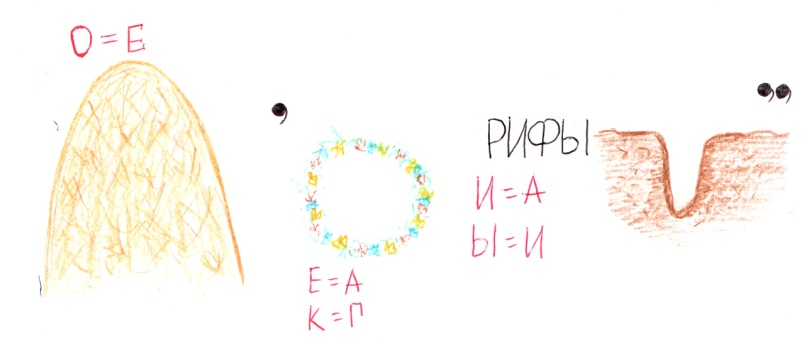 О = Е
,
Е = А
К = Г
РИФЫ
И = А
Ы = И
,,